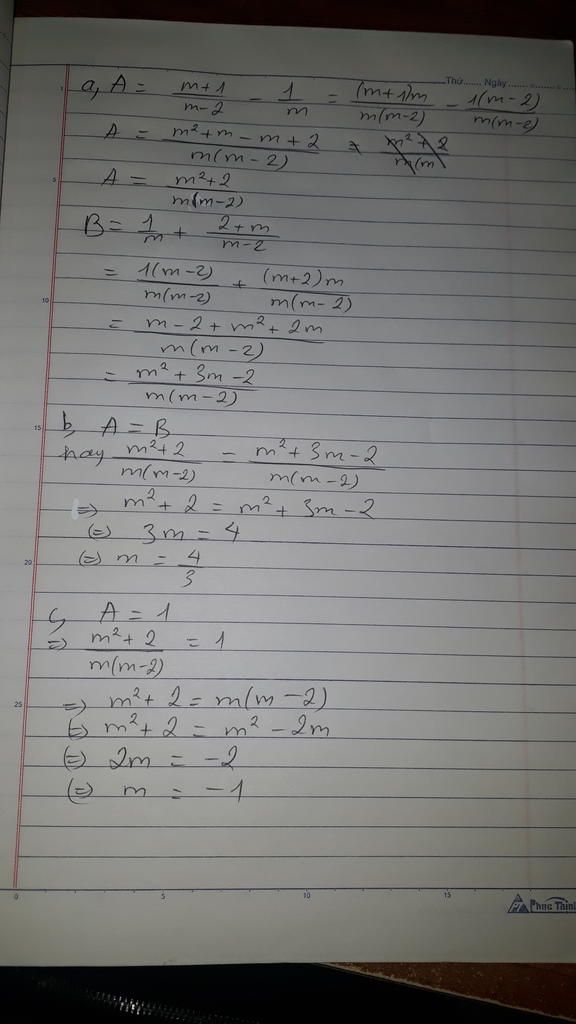 Thứ...... Ngày..............
a, A = \frac{m+1}{m-2} - \frac{1}{m} = \frac{(m+1)m}{m(m-2)} - \frac{1(m-2)}{m(m-2)}
A = \frac{m²+m-m+2}{m(m-2)} =
A = \frac{m²+2}{m(m-2)}
B = \frac{1}{m} + \frac{2+m}{m-2}
= \frac{1(m-2)}{m(m-2)} + \frac{(m+2)m}{m(m-2)}
= \frac{m-2+m²+2m}{m(m-2)}
= \frac{m²+3m-2}{m(m-2)}
b, A = B
hay \frac{m²+2}{m(m-2)} = \frac{m²+3m-2}{m(m-2)}
=> m²+2 = m²+3m-2
(=) 3m = 4
(=) m = \frac{4}{3}
c, A = 1
=> \frac{m²+2}{m(m-2)} = 1
=> m²+2 = m(m-2)
(=) m²+2 = m²-2m
(=) 2m = -2
(=) m = -1
5
10
15
20
25
0 5 10 15